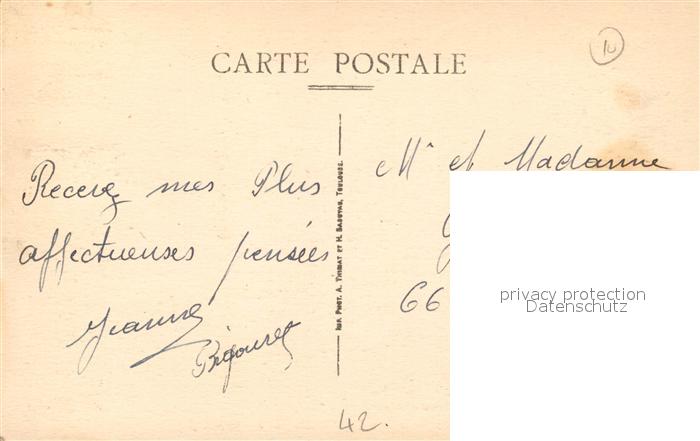 CARTE POSTALE
Recevez mes Plus
affectueuses pensées
Jeanne
Bigouret
IMP. PHOT. A. THIRIAT ET H. BASUYAU, TOULOUSE.
Mr et Madame
66
privacy protection
Datenschutz
42.